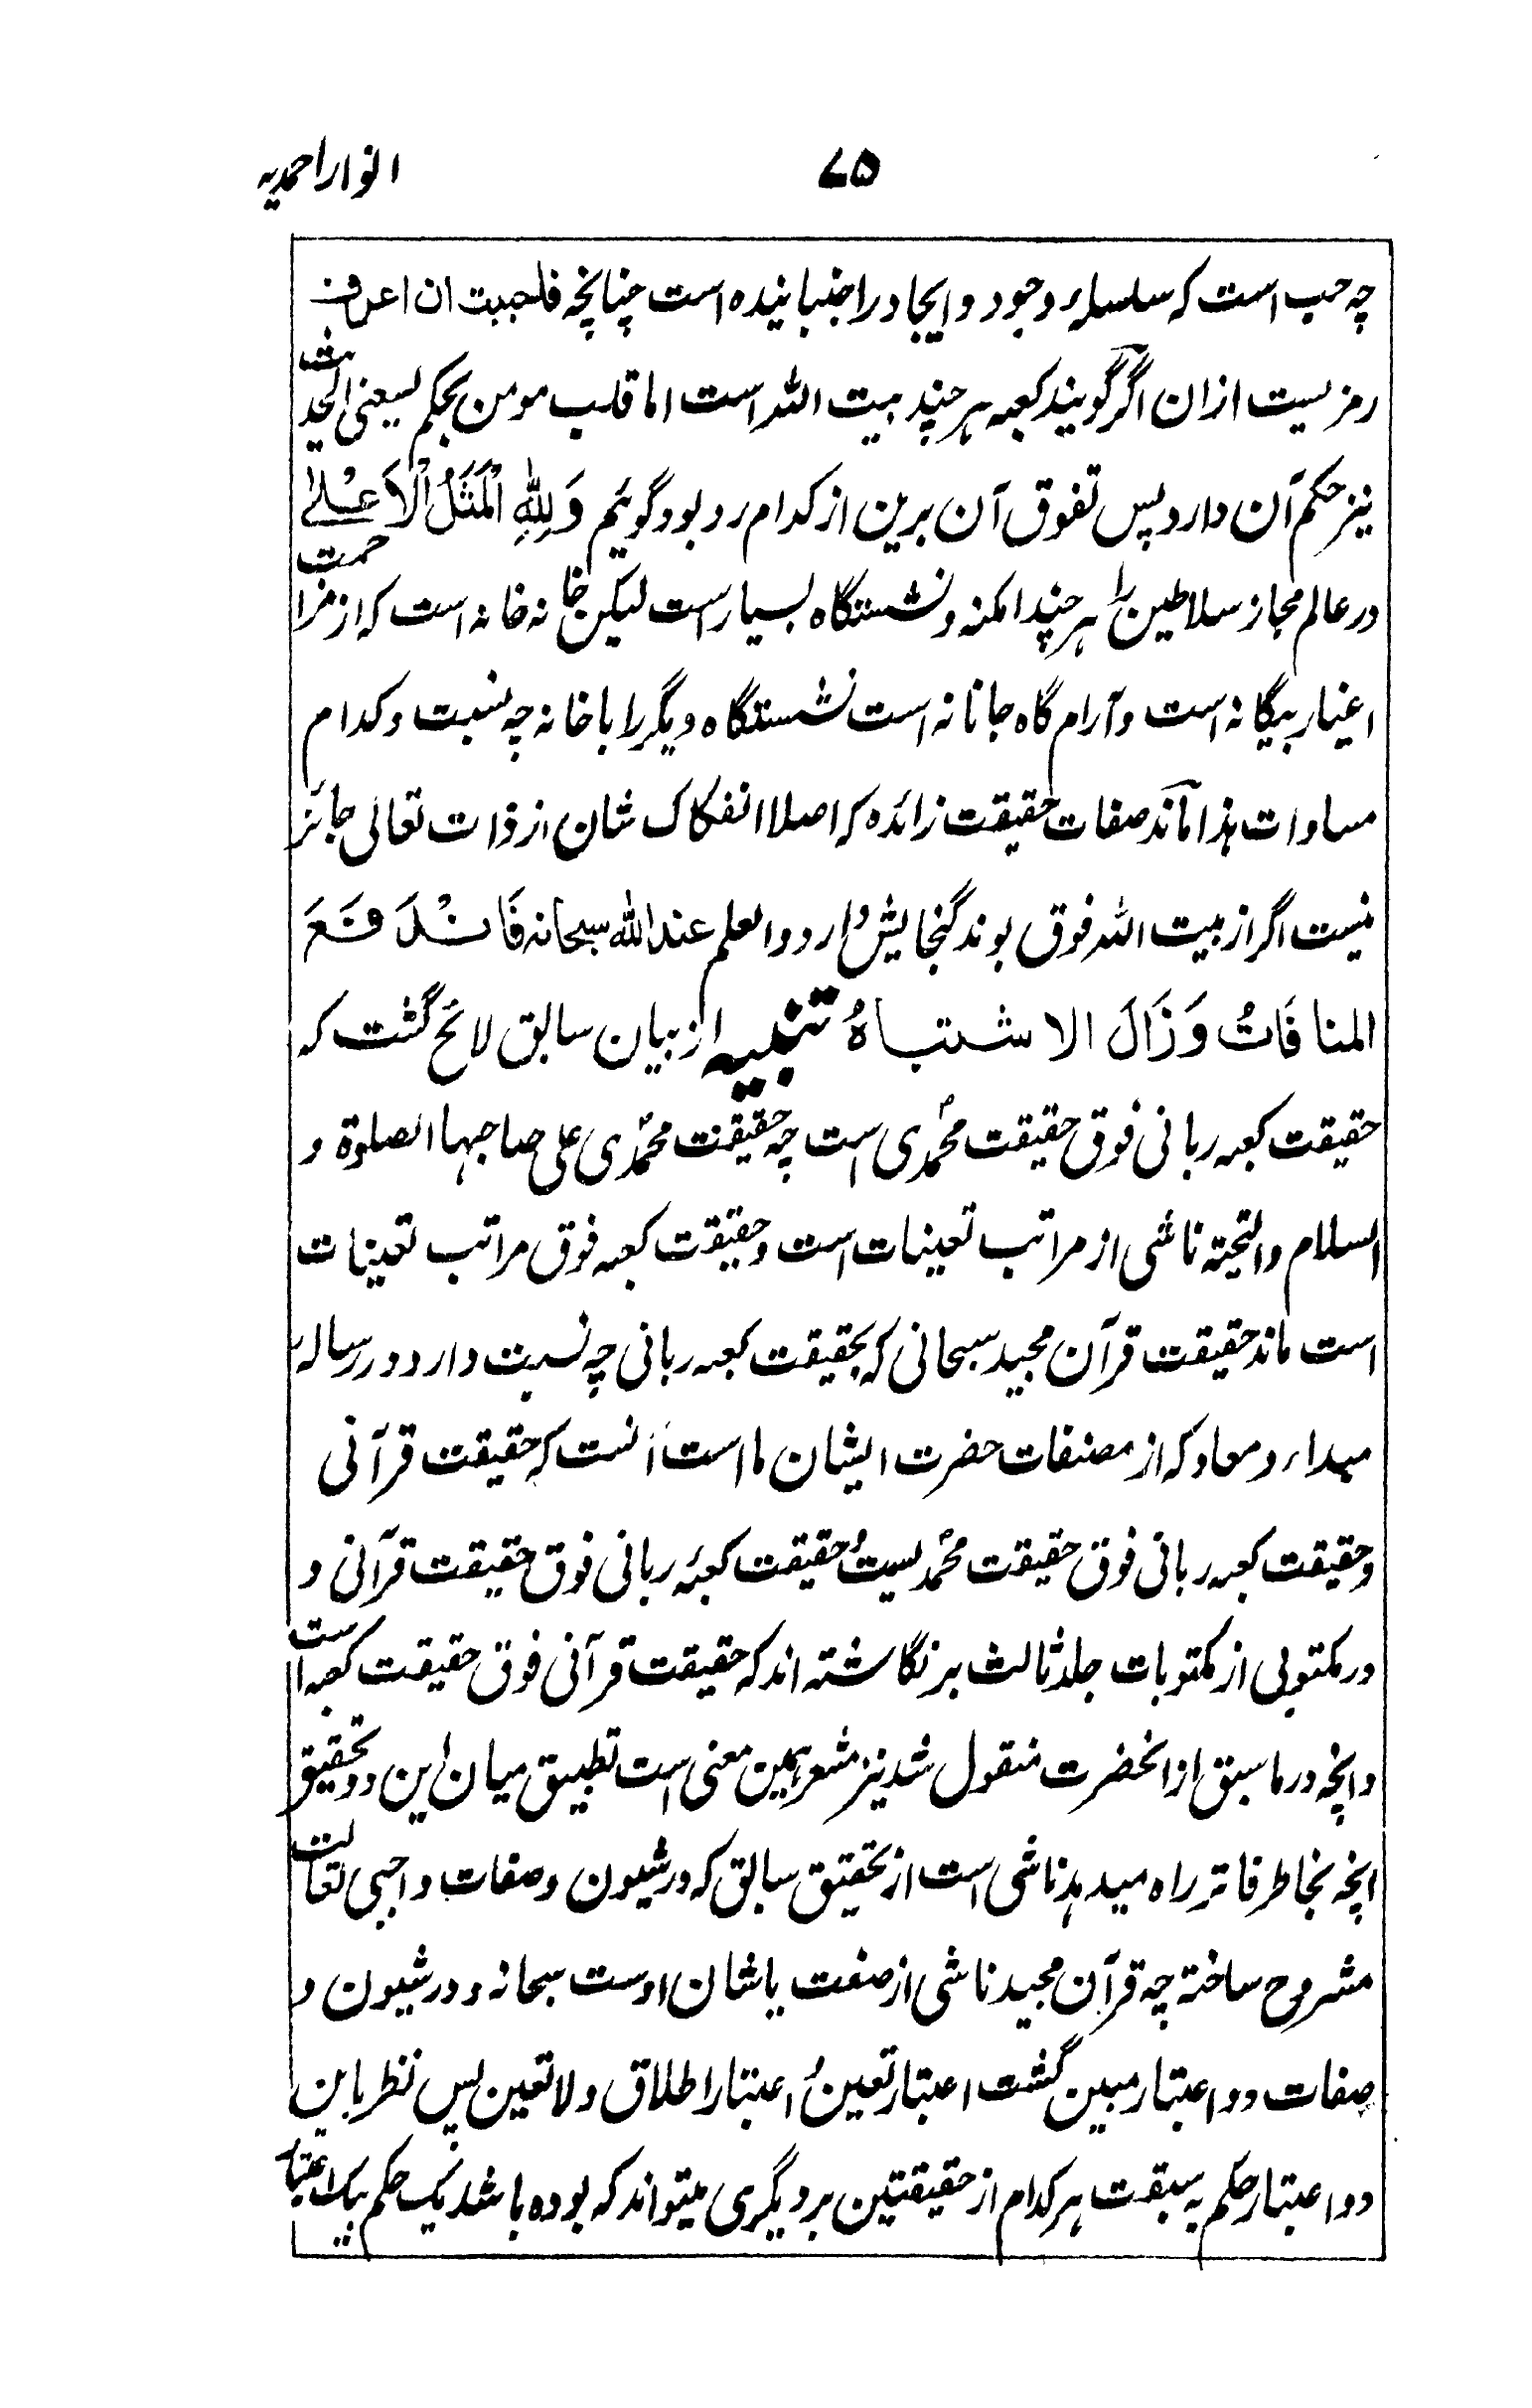 انوار احمدیہ
۷۵
چہ حب است کہ سلسلہ وجود و ایجاد را جنبانیدہ است چنانچہ فاحببت ان اعرف
رمزیست ازان اگر گویند کعبہ ہر چند بیت اللہ است اما قلب مومن بحکم یسعنی الحدیث
نیز حکم آن دارد پس تفوق آن برین از کدام رو بود گوئیم وَلِلّٰهِ الْمَثَلُ الْاَعْلٰی
در عالم مجاز سلاطین را ہر چند امکنہ و نشستگاہ بسیار است لیکن خانہ خانہ است کہ از مزاحمت
اغیار بیگانہ است و آرام گاہ جانانہ است نشستگاہ دیگر را با خانہ چہ نسبت و کدام
مساوات ہذا ماند صفات حقیقت زائدہ کہ اصلا انفکاک شان از ذات تعالی جائز
نیست اگر از بیت اللہ فوق بوند گنجایش دارد والعلم عند اللہ سبحانہ فَانْدَفَعَ
المنافَاتُ وَزَالَ الاشتباہُ تنبیہ از بیان سابق لائح گشت کہ
حقیقت کعبہ ربانی فوق حقیقت محمدی است چہ حقیقت محمدی علی صاحبہا الصلوۃ و
السلام والتحیتہ ناشی از مراتب تعینات است و حقیقت کعبہ فوق مراتب تعینات
است ماند حقیقت قرآن مجید سبحانی کہ بحقیقت کعبہ ربانی چہ نسبت دارد در رسالہ
مبداء و معاد کہ از مصنفات حضرت ایشان ما است آنست کہ حقیقت قرآنی
و حقیقت کعبہ ربانی فوق حقیقت محمدیست و حقیقت کعبہ ربانی فوق حقیقت قرآنی و
در مکتوبی از مکتوبات جلد ثالث بر نگاشتہ اند کہ حقیقت قرآنی فوق حقیقت کعبہ است
و انچہ در ما سبق از انحضرت منقول شد نیز مشعر بہمین معنی است تطبیق میان این دو تحقیق
انچہ بخاطر فاتر راہ میدہد ناشی است از تحقیق سابق کہ در شیون و صفات واجبی تعالت
مشروح ساختہ چہ قرآن مجید ناشی از صفت یا شان اوست سبحانہ و در شیون و
صفات دو اعتبار مبین گشت اعتبار تعین و اعتبار اطلاق و لا تعین پس نظر باین
دو اعتبار حکم بہ سبقت ہر کدام از حقیقتین بر دیگری میتواند کہ بودہ باشد یک حکم بیک اعتبار